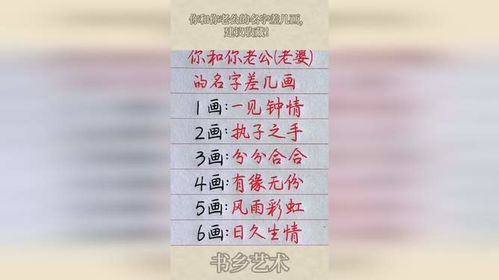 你和你老公的名字差几画,
建议收藏!
你和你老公(老婆)
的名字差几画
1画:一见钟情
2画:执子之手
3画:分分合合
4画:有缘无份
5画:风雨彩虹
6画:日久生情
书乡艺术